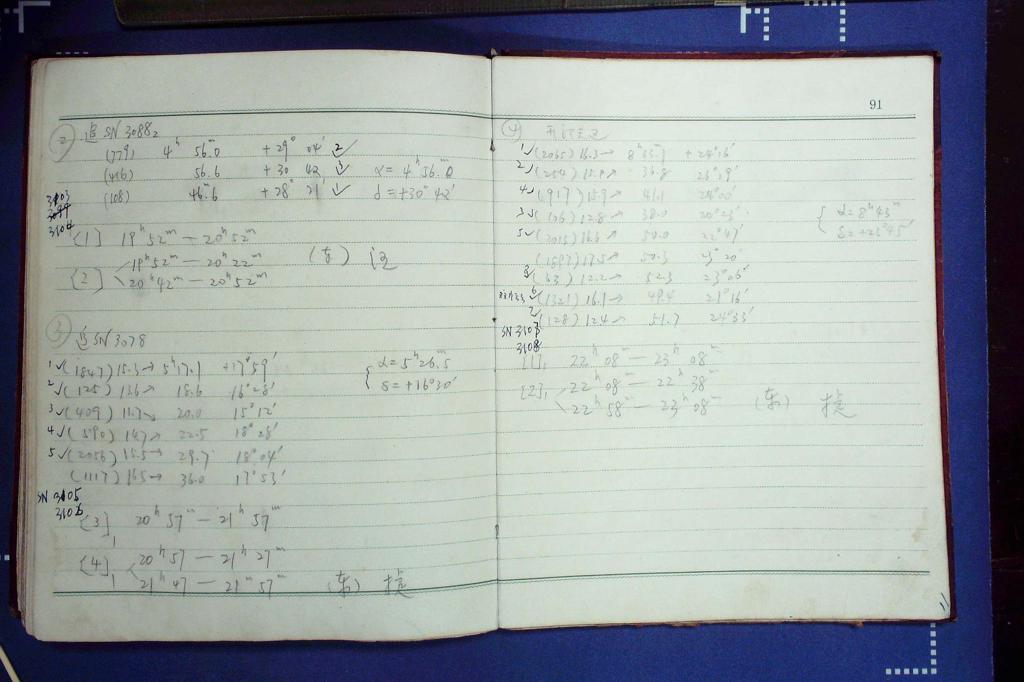 ② 追 SN 3088₂
(779) 4ʰ 56ᵐ.0 +29° 04′ 2✓
(416) 56.6 +30 42 3✓ α=4ʰ56ᵐ.0
(108) 46ᵐ.6 +28° 21′ 1✓ δ=+30°42′
3103
3104
[1] 19ʰ52ᵐ — 20ʰ52ᵐ
[2] 19ʰ52ᵐ — 20ʰ22ᵐ (东)
20ʰ42ᵐ — 20ʰ52ᵐ
③ 追 SN 3078
1✓(1847) 15.3→ 5ʰ17.1 +17°59′ α=5ʰ26ᵐ.5
2✓(125) 13.6→ 18.6 16°28′ δ=+16°30′
3✓(409) 11.7↘ 20.0 15°12′
4✓(590) 14.7→ 22.5 18°28′
5✓(2056) 15.5→ 29.7 18°04′
(1117) 16.5→ 36.0 17°53′
SN 3105
3106
[3] 20ʰ57ᵐ — 21ʰ57ᵐ
[4] 20ʰ57 — 21ʰ27ᵐ
21ʰ47 — 21ʰ57ᵐ (东)
91
④
1✓(2065) 16.3→ +24°16′
2✓(254) 36.8 23°19′
4✓(917) 15.9→ 41.1
3✓(106) 12.8→ 38.0 20°23′ α=8ʰ43ᵐ
5✓(2015) 50.0 22°47′ δ=+23°45′
(1897) 17.5→ 50.3 23°20′
8✓(63) 12.2→ 52.3 23°06′
6✓(1321) 16.1→ 49.4 21°16′
7✓(128) 12.4↗ 51.7 24°33′
SN 3107
3108
[1], 22ʰ08ᵐ — 23ʰ08ᵐ
[2], 22ʰ08ᵐ — 22ʰ38ᵐ
22ʰ58ᵐ — 23ʰ08ᵐ (东)